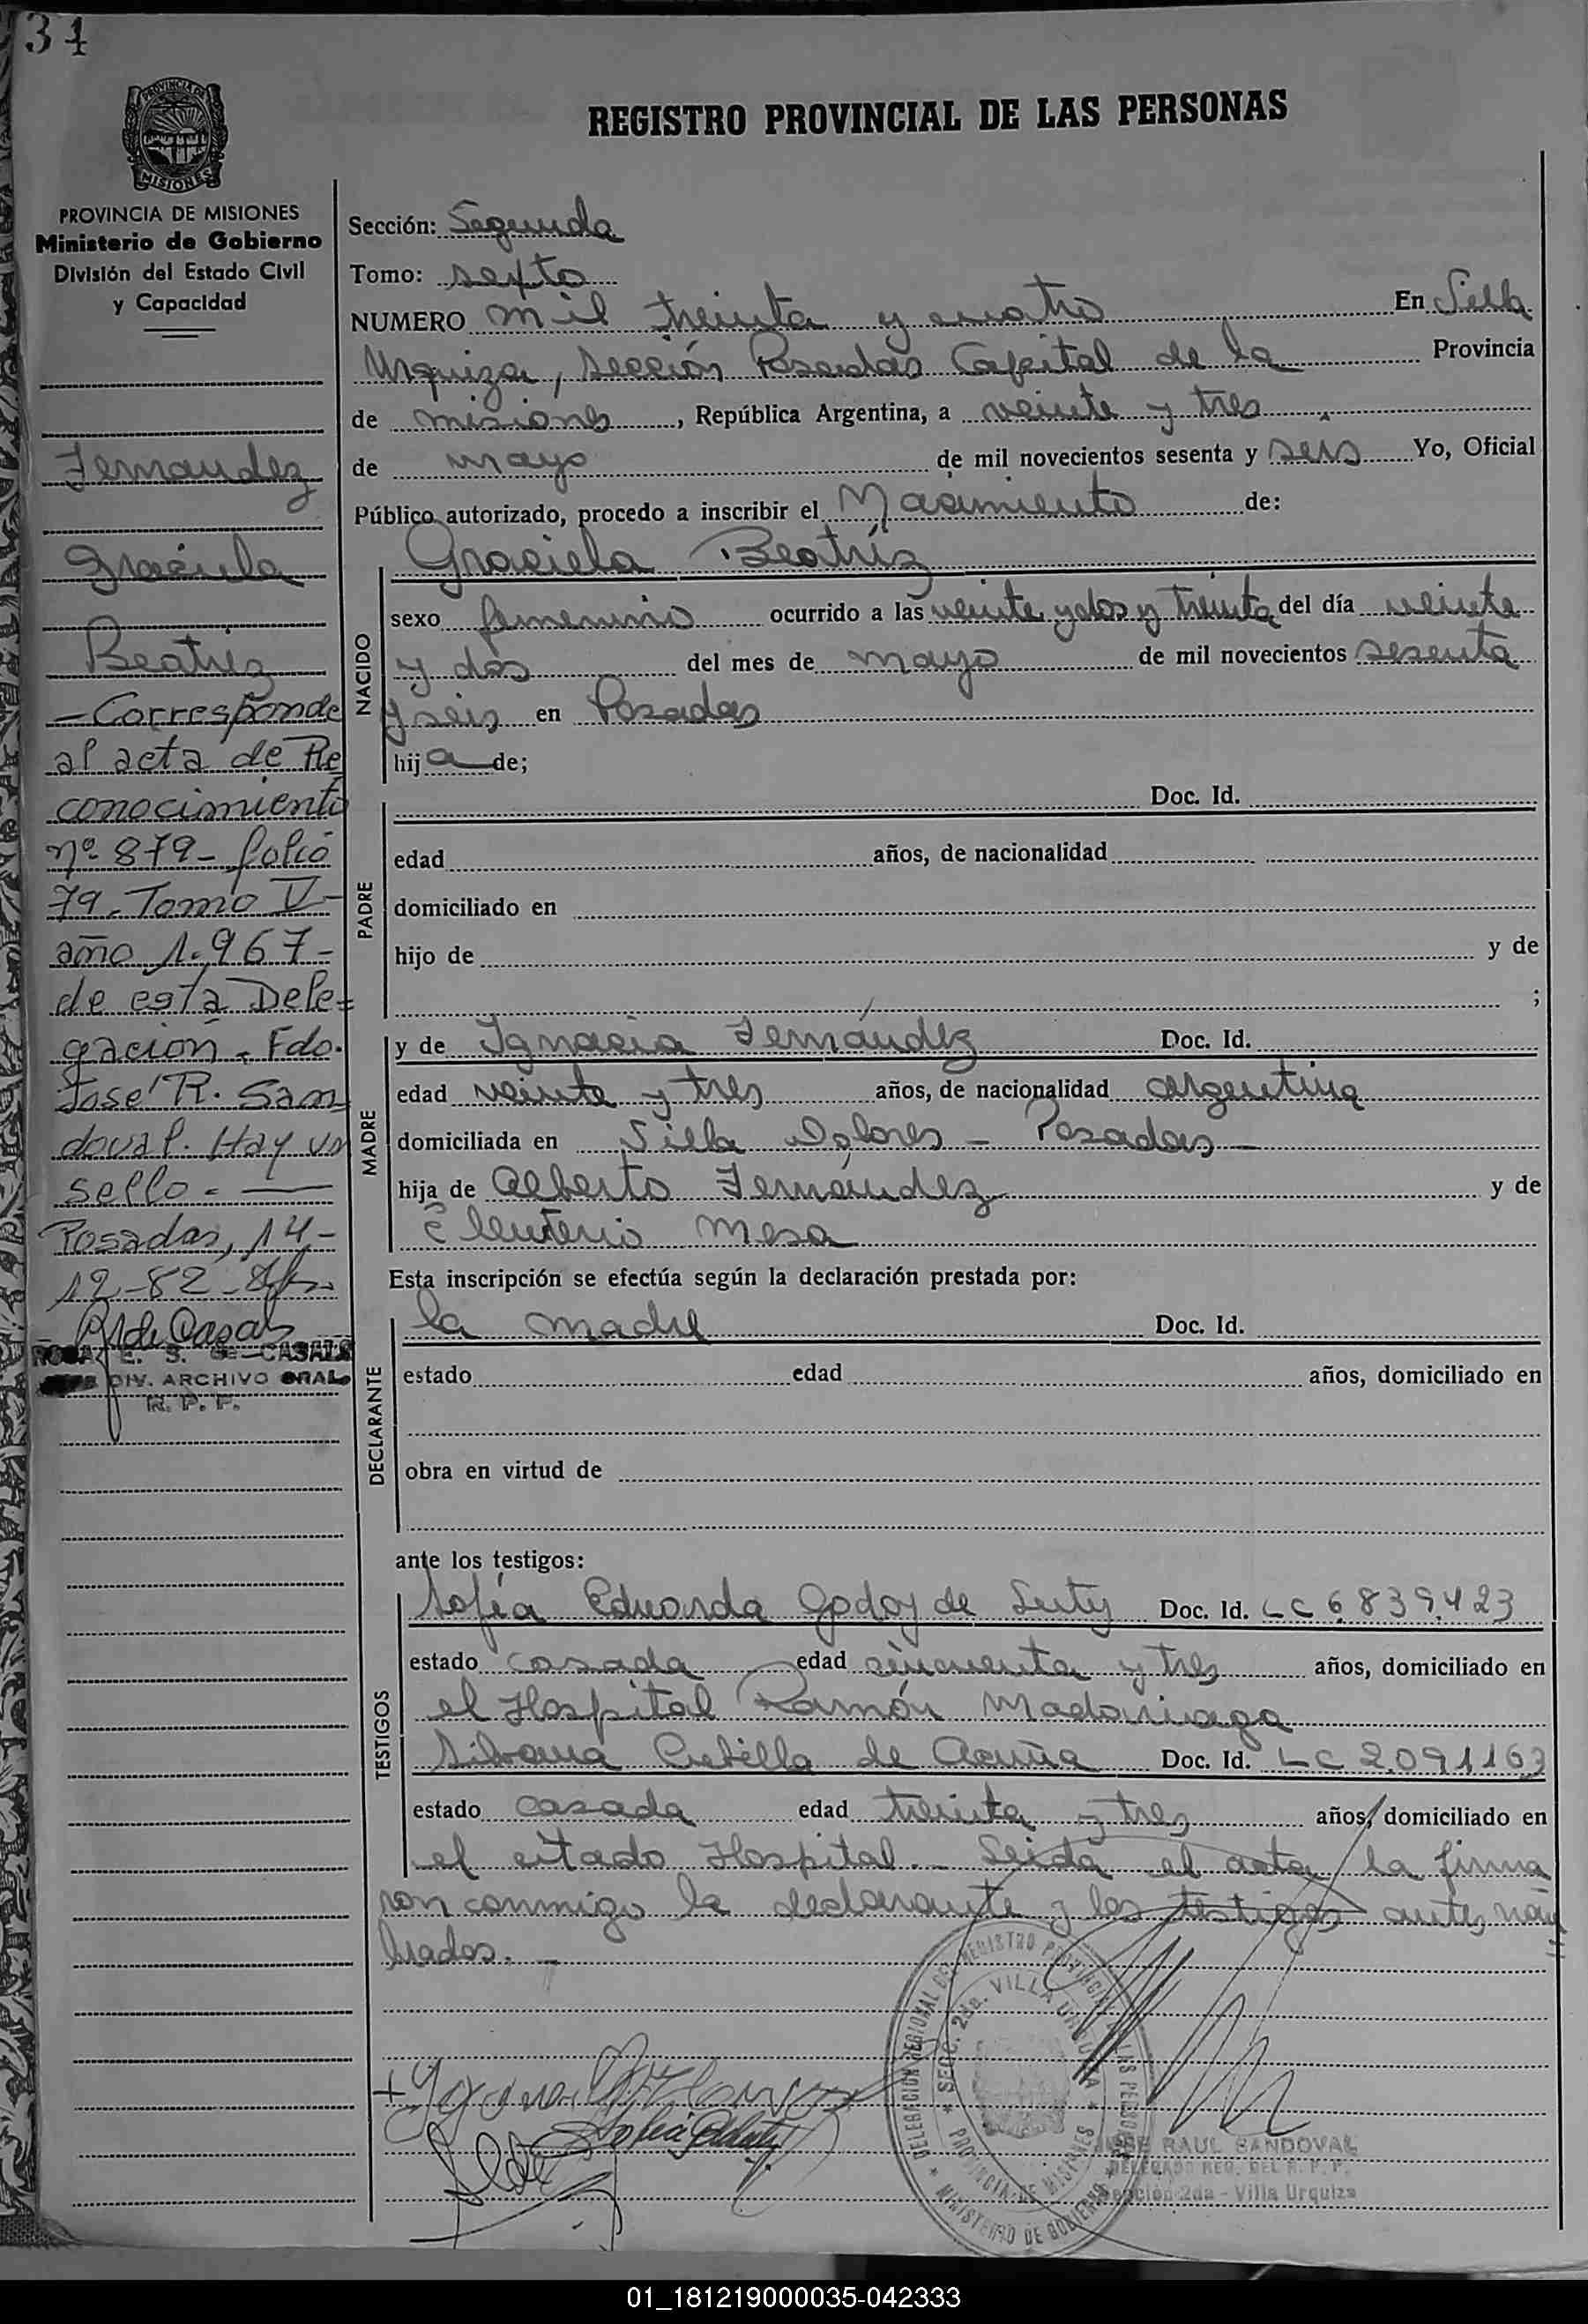 34
PROVINCIA DE
MISIONES
PROVINCIA DE MISIONES
Ministerio de Gobierno
División del Estado Civil
y Capacidad
Fernandez
Graciela
Beatriz
- Corresponde
al acta de Re
conocimiento
nº 879- folio
79. Tomo V-
año 1.967-
de esta Dele=
gación. Fdo.
José R. San
doval. Hay un
sello. -
Posadas, 14-
12-82-
ROSA E. S. de CASALS
DIV. ARCHIVO GRAL.
R. P. P.
REGISTRO PROVINCIAL DE LAS PERSONAS
Sección: Segunda
Tomo: sexto
NUMERO mil treinta y cuatro En Villa
Urquiza, Sección Posadas Capital de la Provincia
de misiones, República Argentina, a veinte y tres
de mayo de mil novecientos sesenta y seis Yo, Oficial
Público autorizado, procedo a inscribir el Nacimiento de:
Graciela Beatríz
NACIDO
sexo femenino ocurrido a las veinte y dos y treinta del día veinte
y dos del mes de mayo de mil novecientos sesenta
y seis en Posadas
hija de;
PADRE
Doc. Id.
edad años, de nacionalidad
domiciliado en
hijo de y de
;
MADRE
y de Ignacia Fernández Doc. Id.
edad veinte y tres años, de nacionalidad argentina
domiciliada en Villa Dolores - Posadas -
hija de Alberto Fernández y de
Eleuteria Mesa
Esta inscripción se efectúa según la declaración prestada por:
DECLARANTE
la madre Doc. Id.
estado edad años, domiciliado en
obra en virtud de
ante los testigos:
TESTIGOS
Sofía Eduarda Godoy de Doc. Id. LC 6.839.423
estado casada edad cincuenta y tres años, domiciliado en
el Hospital Ramón Madariaga
Silvana Cubilla de Acuña Doc. Id. LC 2.091163
estado casada edad treinta y tres años, domiciliado en
el citado Hospital. Leida el acta, la firma
con conmigo la declarante y los testigos antes nom
brados. -
DELEGACION REGIONAL DEL REGISTRO PROVINCIAL DE LAS PERSONAS
SECC. 2da. VILLA URQUIZA
PROVINCIA DE MISIONES
MINISTERIO DE GOBIERNO
JOSE RAUL SANDOVAL
DELEGADO REG. DEL R. P. P.
Sección 2da - Villa Urquiza
01_181219000035-042333